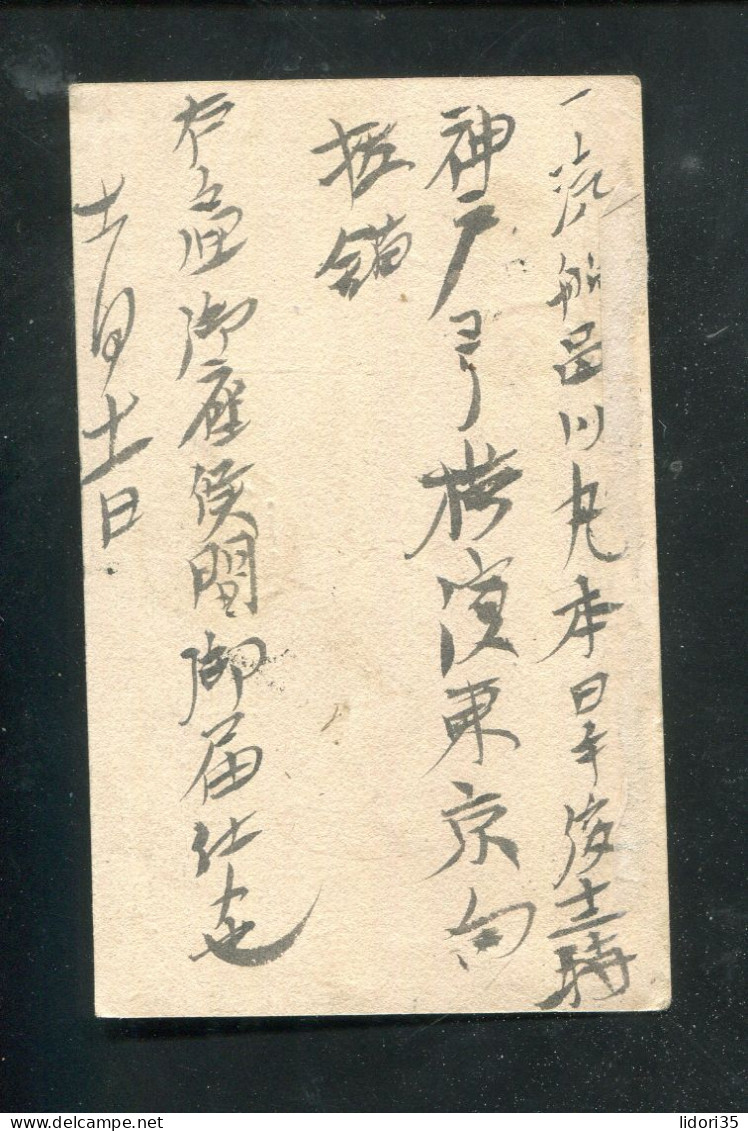 一 汽船品川丸本日午後十二時
神戸ヨリ横濱東京向
抜錨
右之通御座候間御届仕候也
十一月十一日
lidori35